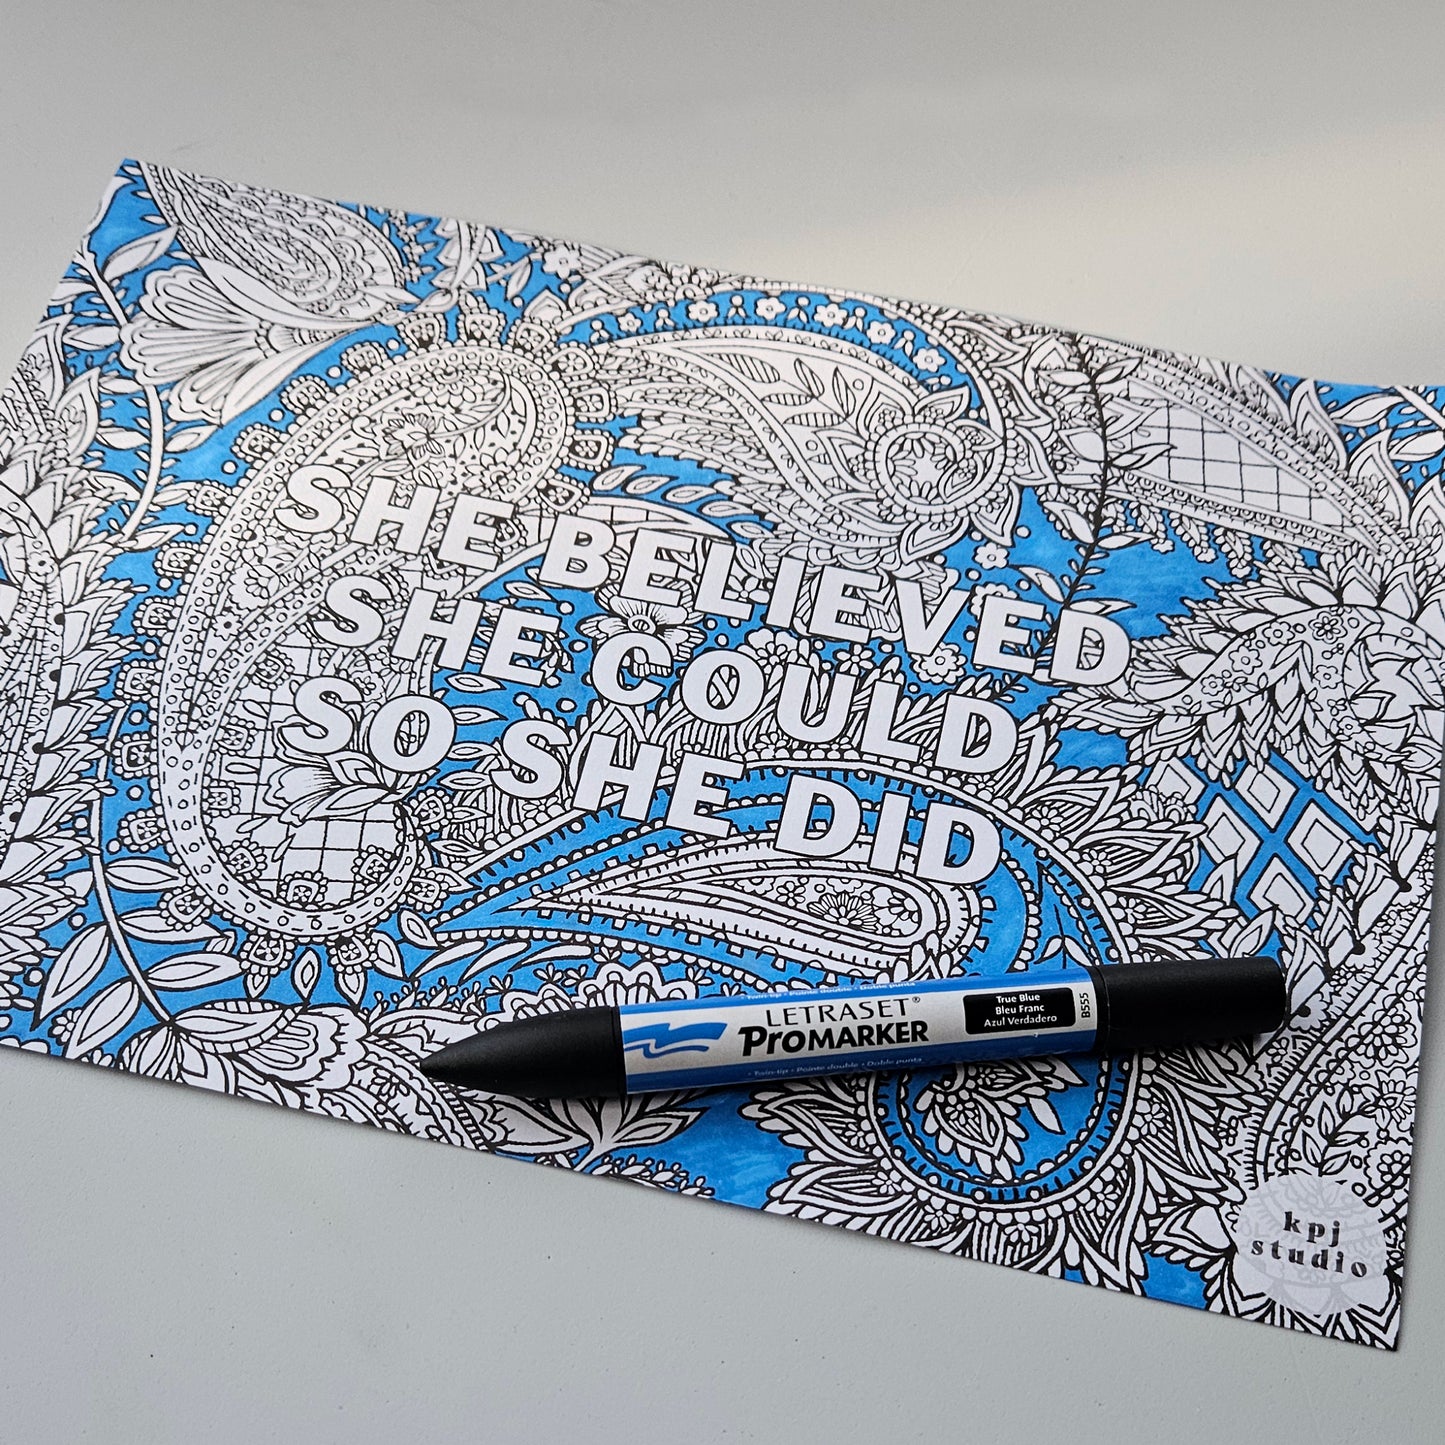 SHE BELIEVED
SHE COULD
SO SHE DID
• Twin-tip • Pointe double • Doble punta
LETRASET®
PROMARKER
• Twin-tip • Pointe double • Doble punta
True Blue
Bleu Franc
Azul Verdadero
B555
kpj
studio